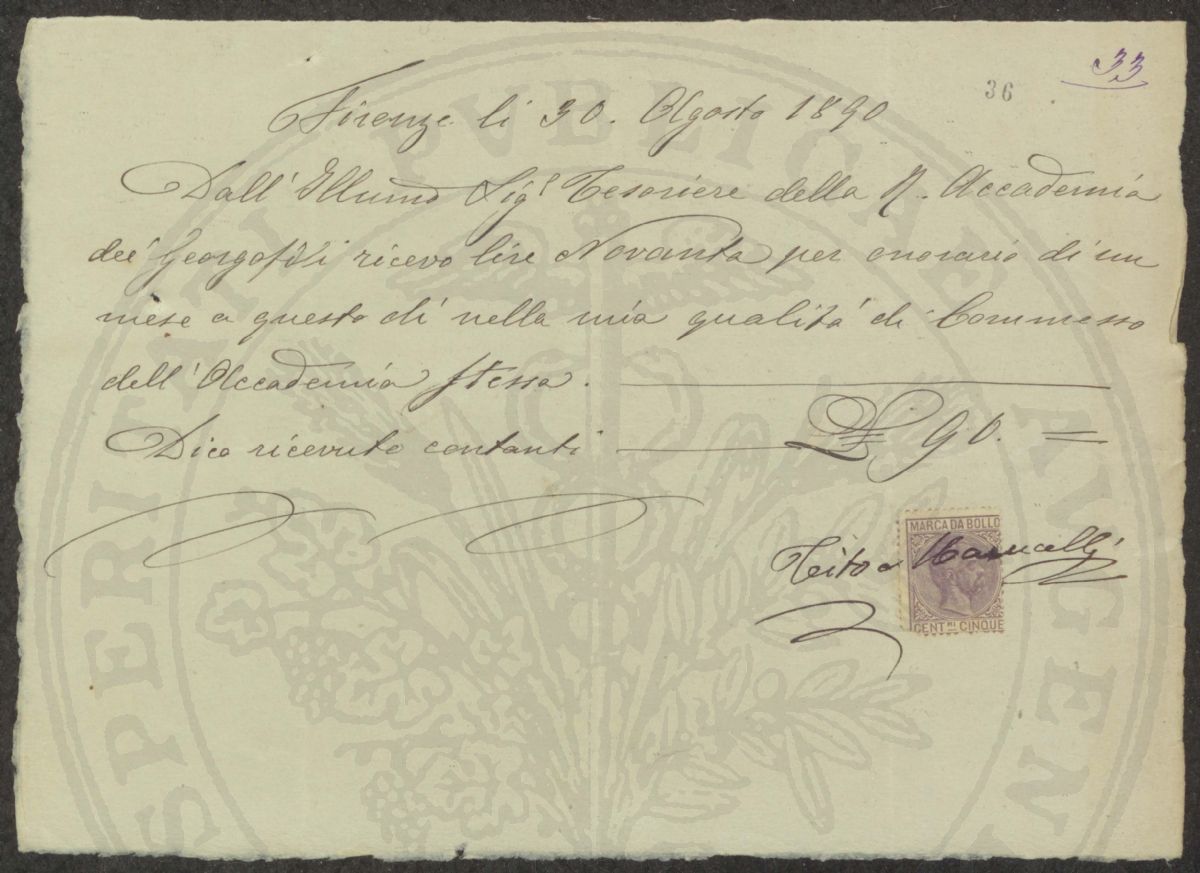 33
36
Firenze li 30. Agosto 1890
Dall' Illumo Sigr Tesoriere della R. Accademia
dei Georgofili ricevo lire Novanta per onorario di un
mese a questo dì nella mia qualità di Commesso
dell' Accademia stessa.
Dico ricevute contanti £ 90. =
MARCA DA BOLLO
Tito Marucelli
CENT.MI CINQUE
PROSPERITATI PVBLICAE AVGENDAE